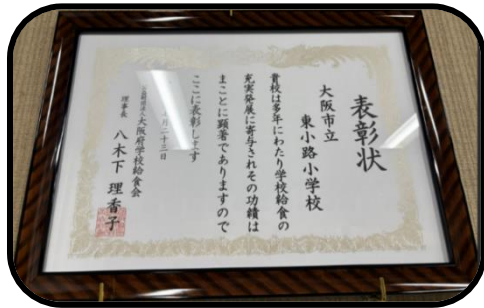 表彰状
大阪市立
東小路小学校
貴校は多年にわたり学校給食の
充実発展に寄与されその功績は
まことに顕著でありますので
ここに表彰します
月二十三日
大阪府学校給食会
理事長 八木下 理香子